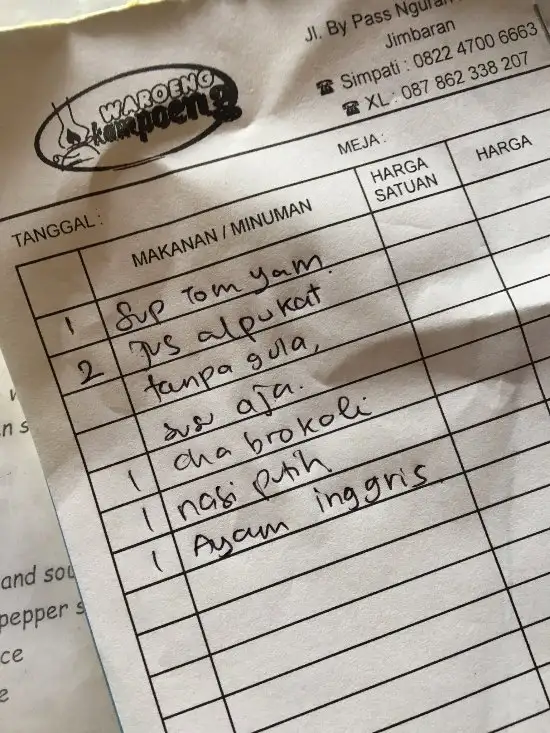 WAROENG
kampoeng
Jl. By Pass Ngurah
Jimbaran
☎ Simpati : 0822 4700 6663
☎ XL : 087 862 338 207
MEJA :
TANGGAL :
MAKANAN / MINUMAN
HARGA
SATUAN
HARGA
1 Sup Tom yam.
2 jus alpukat
tanpa gula,
susu aja.
1 cha brokoli
1 nasi putih
1 Ayam inggris.
n s
and sou
pepper s
ce
e